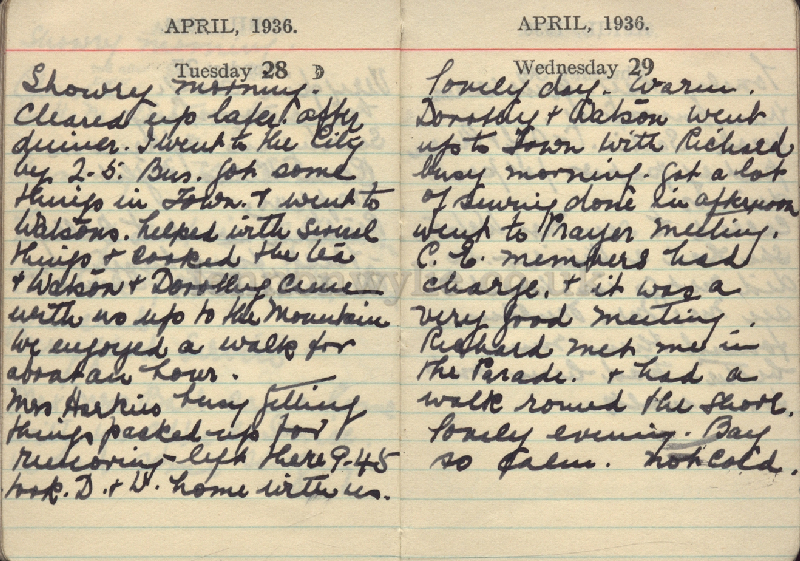 APRIL, 1936.
Tuesday 28
Showry morning.
Cleared up later. after
dinner. I went to the City
by 2-5. Bus. got some
things in Town. & went to
Watsons. helped with several
things & cooked the tea
& Watson & Dorothy came
with us up to the Mountain
we enjoyed a walk for
about an hour.
Mrs Harkins busy getting
things packed up for
removing left there 9-45
took. D. & W. home with us.
APRIL, 1936.
Wednesday 29
lovely day. Warm.
Dorothy & Watson went
up to Town with Richard
busy morning. got a lot
of sewing done in afternoon
went to Prayer meeting.
C. E. members had
charge. & it was a
very good meeting.
Richard met me in
the Parade. & had a
walk round the shore.
lovely evening. Bay
so calm. not cold.